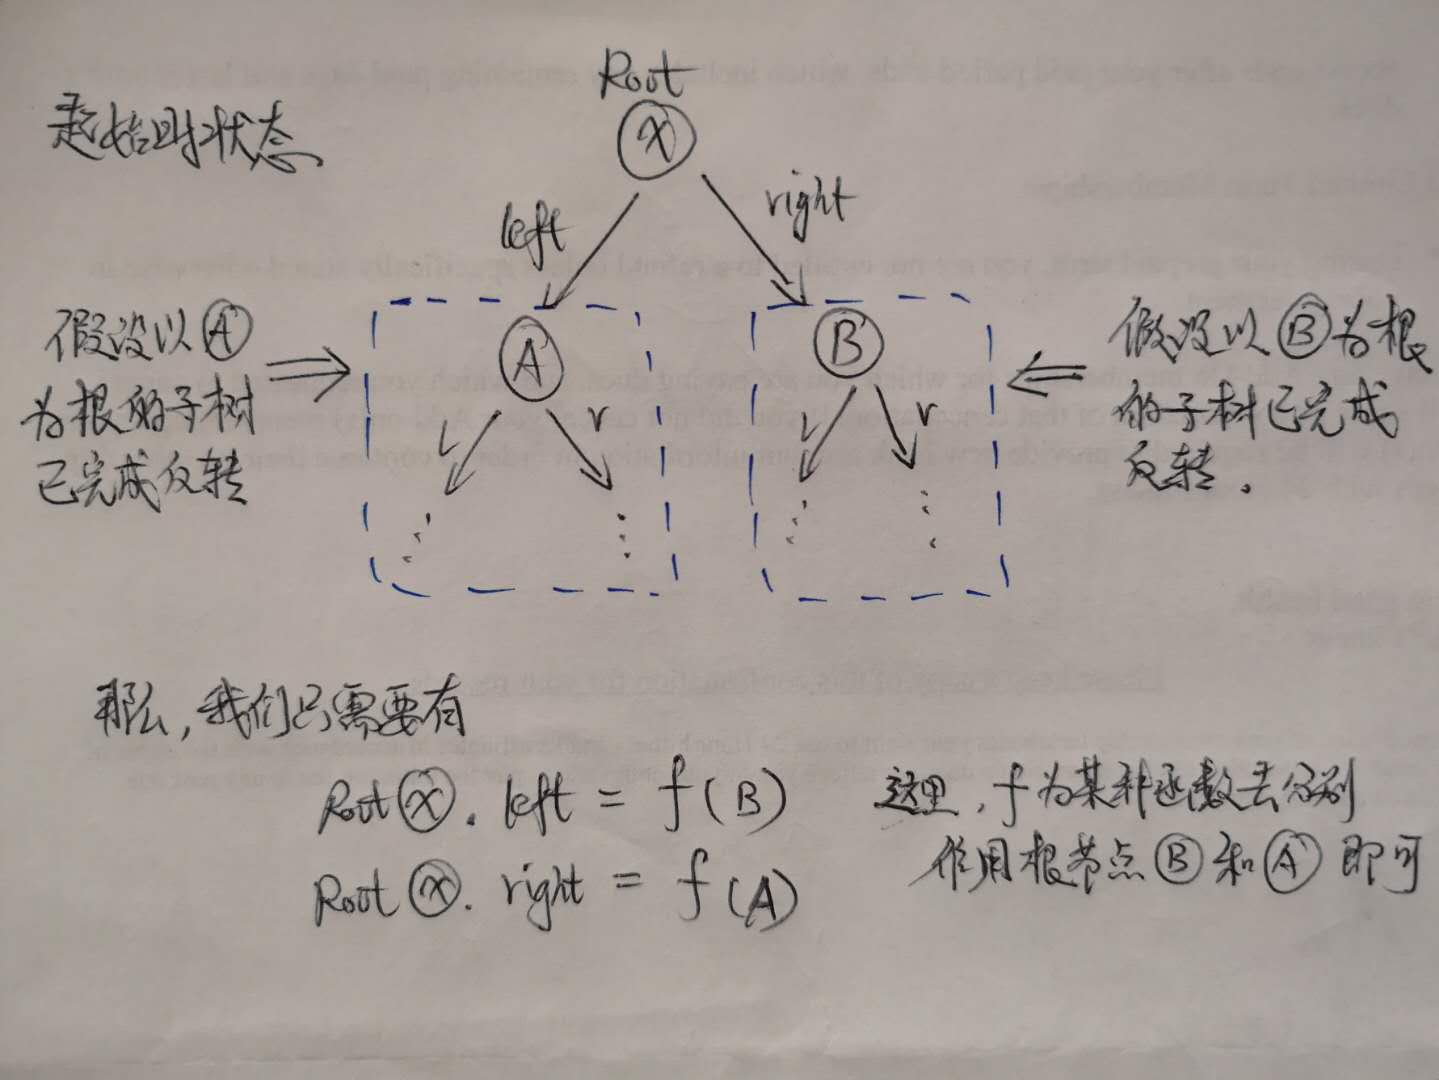 Root
起始时状态
X
left
right
假设以Ⓐ
为根的子树
已完成反转
A
B
l
r
l
r
假设以Ⓑ为根
的子树已完成
反转.
那么,我们只需要有
RootⓍ. left = f(B)
RootⓍ. right = f(A)
这里,f为某种函数去分别
作用根节点Ⓑ和Ⓐ即可